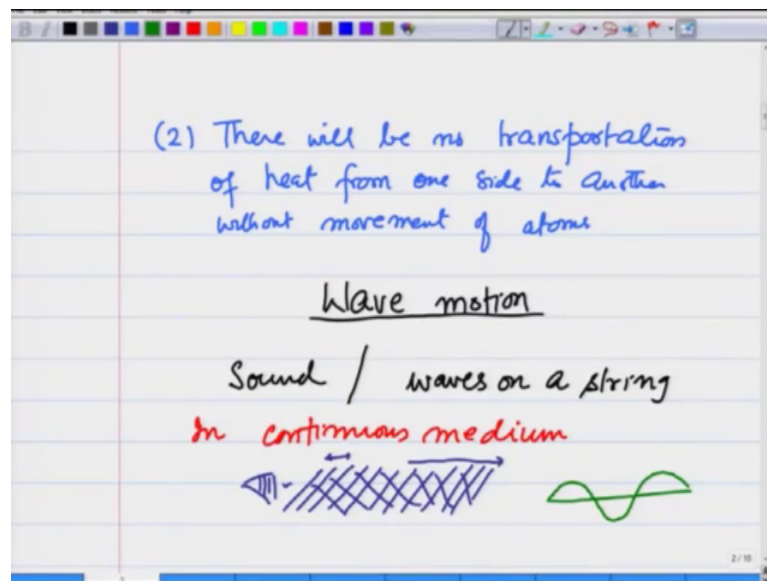 (2) There will be no transportation
of heat from one side to another
without movement of atoms
Wave motion
Sound / waves on a string
In continuous medium
2/10